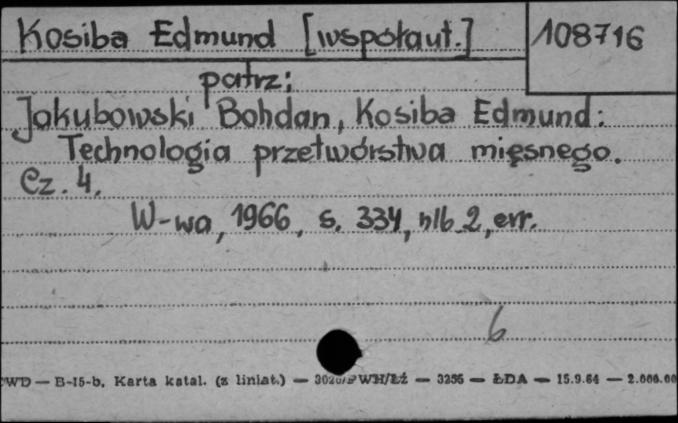 Kosiba Edmund [współaut.] 108716
patrz:
Jakubowski Bohdan, Kosiba Edmund:
Technologia przetwórstwa mięsnego.
Cz. 4.
W-wa, 1966, s. 334, nlb 2, err.
6
PWD — B-15-b. Karta katal. (z liniat.) — WH/Łź — 3256 — ŁDA — 15.9.64 — 2.000.00